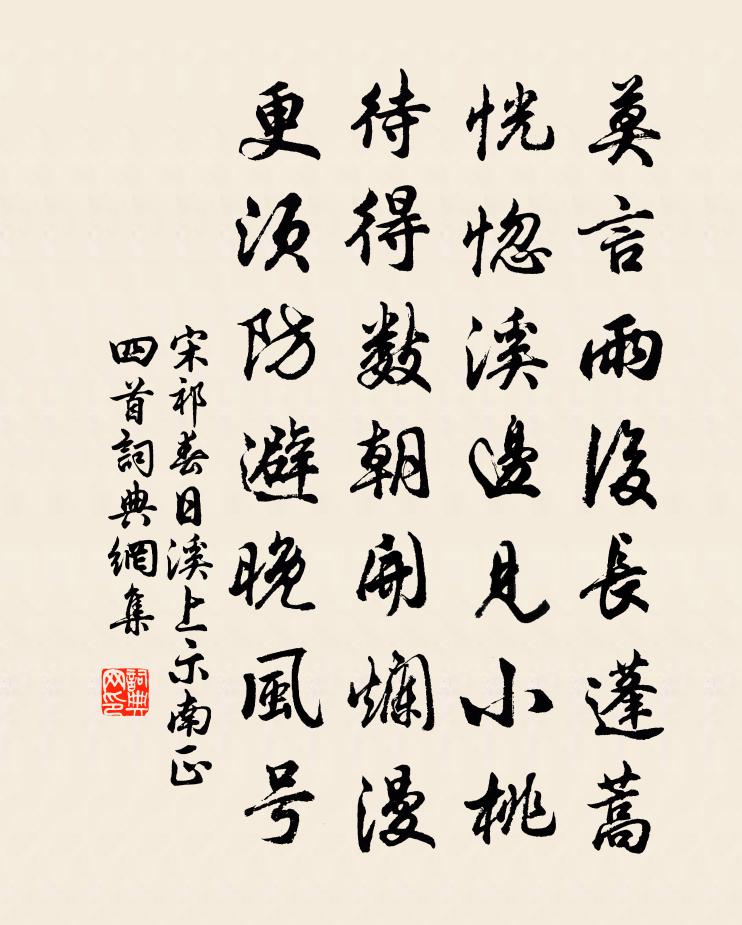 莫言雨後長蓬蒿
恍惚溪邊見小桃
待得數朝開爛漫
更須防避晚風号
宋祁春日溪上示南正
四首詞典網集
詞典网印